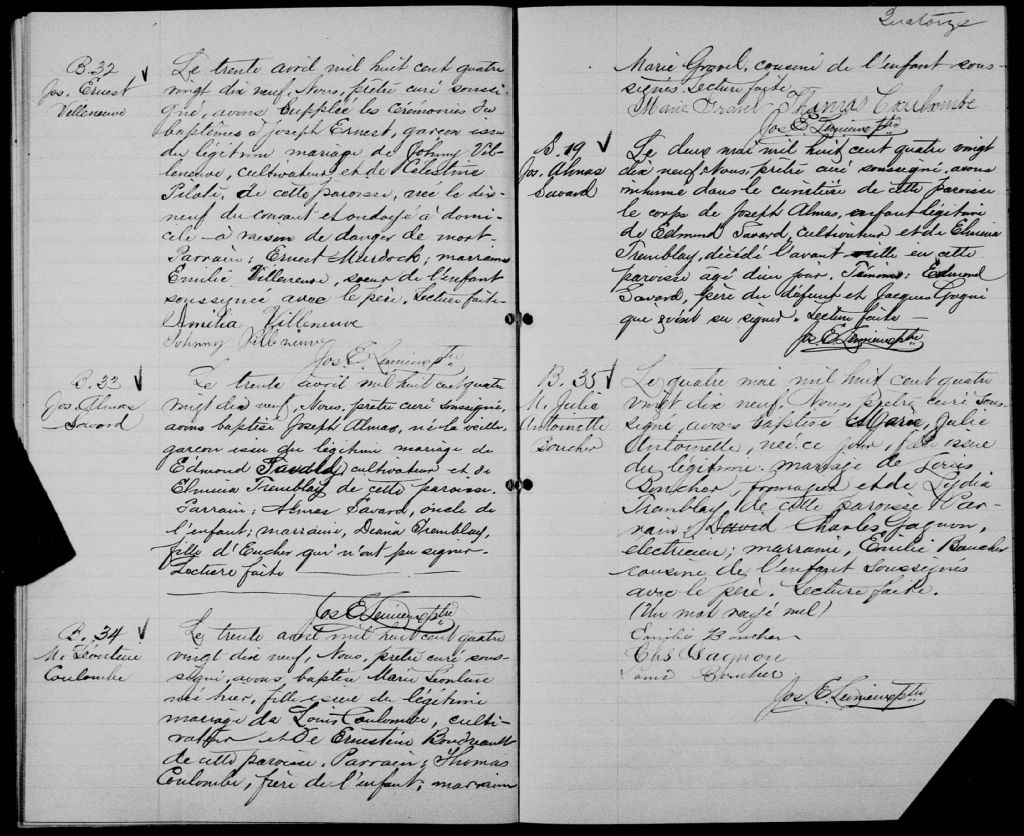 B. 32
Jos. Ernest
Villeneuve
Le trente avril mil huit cent quatre
vingt dix neuf, Nous, prêtre curé soussi-
gné, avons suppléé les cérémonies du
baptêmes à Joseph Ernest, garçon issu
du légitime mariage de Johnny Vil-
leneuve, cultivateur et de Célestine
Pilote, de cette paroisse, né le dix
neuf du courant et ondoyé à domi-
cile à raison de danger de mort.
Parrain; Ernest Murdock; marraine
Emilie Villeneuve, soeur de l'enfant
soussignée avec le père. Lecture faite.
Amélia Villeneuve
Johnny Villeneuve
Jos. E. Lemieux Ptre
B. 33
Jos. Almas
Savard
Le trente avril mil huit cent quatre
vingt dix neuf, Nous, prêtre curé soussigné,
avons baptisé Joseph Almas, né la veille,
garçon issu du légitime mariage de
Edmond Savard, cultivateur et de
Elmina Tremblay de cette paroisse.
Parrain; Almas Savard, oncle de
l'enfant; marraine, Diana Tremblay,
fille d'Eucher qui n'ont pu signer.
Lecture faite
Jos. E. Lemieux Ptre
B. 34
M. Léontine
Coulombe
Le trente avril mil huit cent quatre
vingt dix neuf, Nous, prêtre curé sous-
signé, avons, baptisé Marie Leontine
née hier, fille issue du légitime
mariage de Louis Coulombe, culti-
vateur et de Ernestine Boudreault
de cette paroisse. Parrain; Thomas
Coulombe, frère de l'enfant; marraine
Quatorze
Marie Gravel, cousine de l'enfant sous-
signés. Lecture faite.
Marie Gravel Thomas Coulombe
Jos. E. Lemieux Ptre
S. 19
Jos. Almas
Savard
Le deux mai mil huit cent quatre vingt
dix neuf, Nous, prêtre curé soussigné, avons
inhumé dans le cimetière de cette paroisse
le corps de Joseph Almas, enfant légitime
de Edmond Savard, cultivateur et de Elmina
Tremblay, décédé l'avant veille en cette
paroisse agé d'un jour. Témoins: Edmond
Savard, père du défunt et Jacques Gagné
qui n'ont su signer. Lecture faite —
Jos. E. Lemieux Ptre
B. 35
M. Julia
Antoinette
Boucher
Le quatre mai mil huit cent quatre
vingt dix neuf, Nous, prêtre curé sous-
signé, avons baptisé Marie, Julie
Antoinette, née ce jour, fille issue
du légitime mariage de Louis
Boucher, fromager et de Lydia
Tremblay de cette paroisse. Par-
rain, David Charles Gagnon,
electricien; marraine, Emilie Boucher
cousine de l'enfant soussignés
avec le père. Lecture faite.
(Un mot rayé nul)
Emilie Boucher
Chs Gagnon
Louis Boucher
Jos. E. Lemieux Ptre